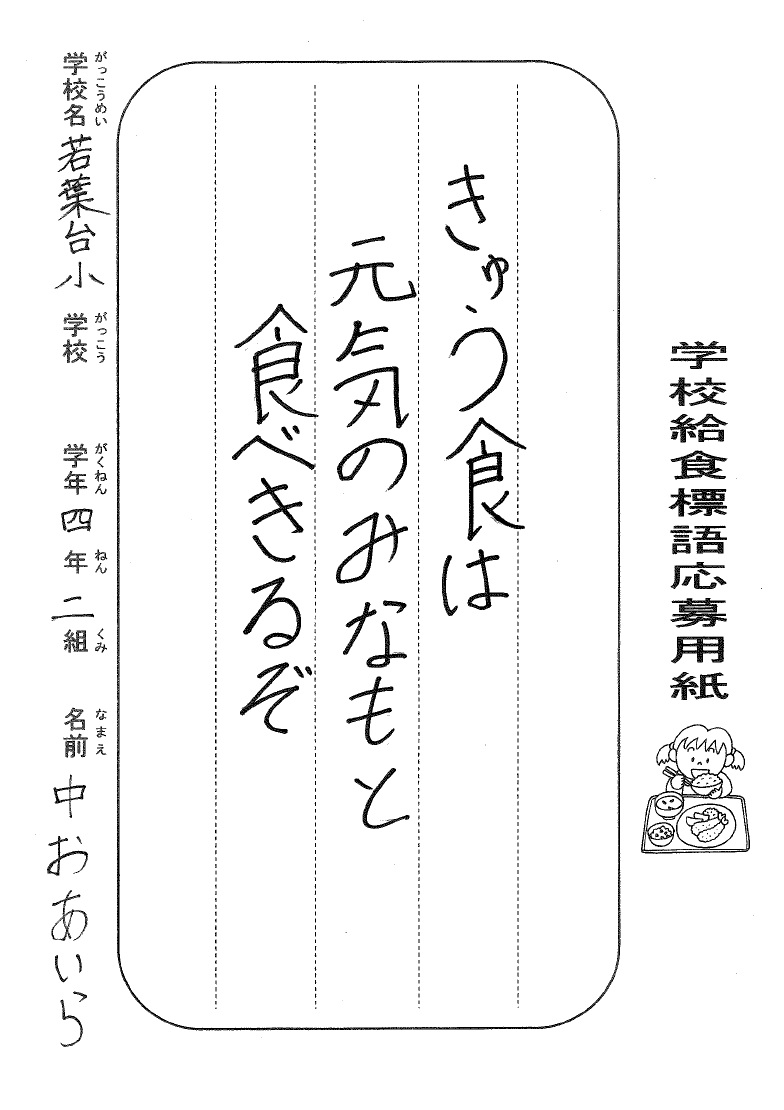 学校給食標語応募用紙
きゅう食は
元気のみなもと
食べきるぞ
学校名 若葉台小 学校 学年 四年 二組 名前 中おあいら
がっこうめい がっこう がくねん ねん くみ なまえ